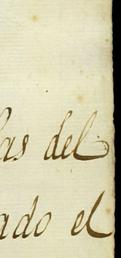 las del
ado el